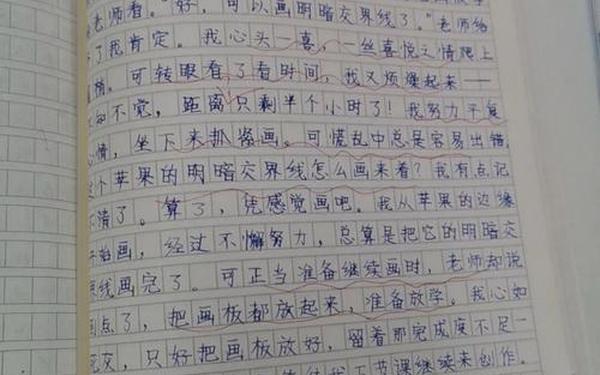 老师看。"好，可以画明暗交界线了。"老师给
了我肯定。我心头一喜，一丝喜悦之情爬上
梢。可转眼看了看时间，我又烦燥起来——
不觉，距离只剩半个小时了！我努力平复
心情，坐下来趴着画。可慌乱中总是容易出错，
这个苹果的明暗交界线怎么画来着？我有点记
不清了。算了，凭感觉画吧。我从苹果的边缘
开始画，经过不懈努力，总算是把它的明暗交
界线画完了。可正当准备继续画时，老师却说
到点了，把画板都放起来，准备放学。我心如
死灰，只好把画板放好，留着那完成度不足一
下节课继续来创作。